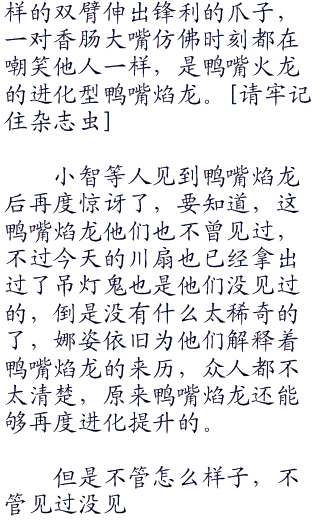 样的双臂伸出锋利的爪子，
一对香肠大嘴仿佛时刻都在
嘲笑他人一样，是鸭嘴火龙
的进化型鸭嘴焰龙。[请牢记
住杂志虫]
小智等人见到鸭嘴焰龙
后再度惊讶了，要知道，这
鸭嘴焰龙他们也不曾见过，
不过今天的川扇也已经拿出
过了吊灯鬼也是他们没见过
的，倒是没有什么太稀奇的
了，娜姿依旧为他们解释着
鸭嘴焰龙的来历，众人都不
太清楚，原来鸭嘴焰龙还能
够再度进化提升的。
但是不管怎么样子，不
管见过没见